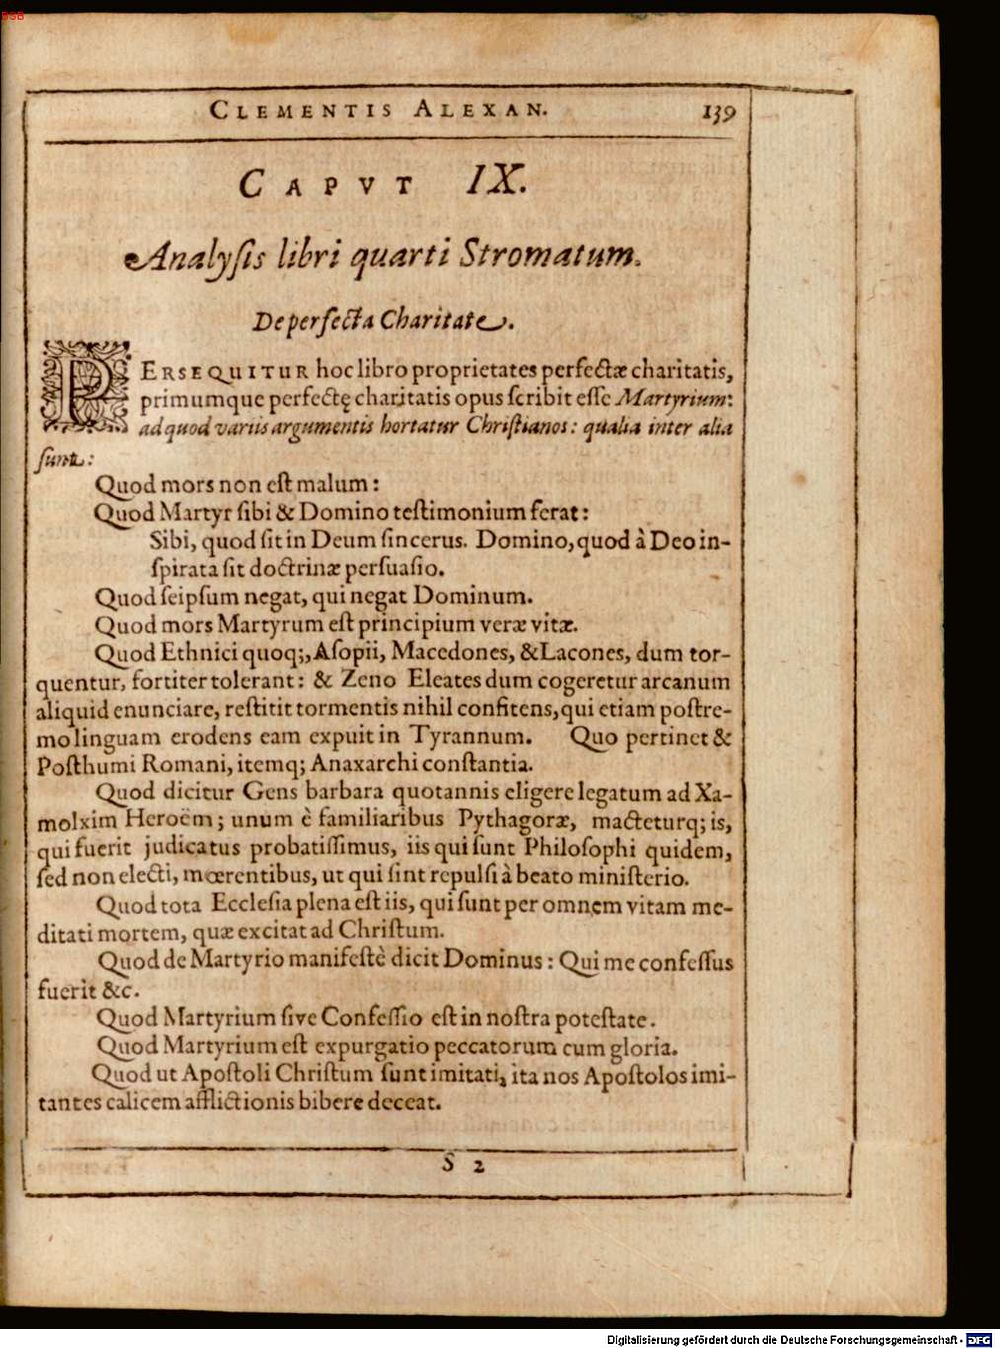 BSB
CLEMENTIS ALEXAN. 139
CAPVT IX.
Analyſis libri quarti Stromatum.
De perfecta Charitate.
PERSEQUITUR hoc libro proprietates perfectæ charitatis,
primumque perfectę charitatis opus ſcribit eſſe Martyrium:
ad quod variis argumentis hortatur Chriſtianos: qualia inter alia
ſunt:
Quod mors non eſt malum:
Quod Martyr ſibi & Domino teſtimonium ferat:
Sibi, quod ſit in Deum ſincerus. Domino, quod à Deo in-
ſpirata ſit doctrinæ perſuaſio.
Quod ſeipſum negat, qui negat Dominum.
Quod mors Martyrum eſt principium veræ vitæ.
Quod Ethnici quoq;, Aſopii, Macedones, & Lacones, dum tor-
quentur, fortiter tolerant: & Zeno Eleates dum cogeretur arcanum
aliquid enunciare, reſtitit tormentis nihil confitens, qui etiam poſtre-
mo linguam erodens eam expuit in Tyrannum. Quo pertinet &
Poſthumi Romani, itemq; Anaxarchi conſtantia.
Quod dicitur Gens barbara quotannis eligere legatum ad Xa-
molxim Heroëm; unum è familiaribus Pythagoræ, macteturq; is,
qui fuerit judicatus probatiſſimus, iis qui ſunt Philoſophi quidem,
ſed non electi, mœrentibus, ut qui ſint repulſi à beato miniſterio.
Quod tota Eccleſia plena eſt iis, qui ſunt per omnem vitam me-
ditati mortem, quæ excitat ad Chriſtum.
Quod de Martyrio manifeſtè dicit Dominus: Qui me confeſſus
fuerit &c.
Quod Martyrium ſive Confeſſio eſt in noſtra poteſtate.
Quod Martyrium eſt expurgatio peccatorum cum gloria.
Quod ut Apoſtoli Chriſtum ſunt imitati, ita nos Apoſtolos imi-
tantes calicem afflictionis bibere deceat.
S 2
Digitalisierung gefördert durch die Deutsche Forschungsgemeinschaft - DFG